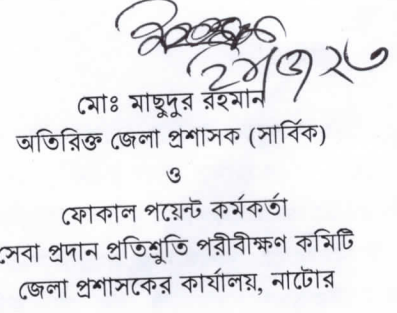 মোঃ মাছুদুর রহমান
অতিরিক্ত জেলা প্রশাসক (সার্বিক)
ও
ফোকাল পয়েন্ট কর্মকর্তা
সেবা প্রদান প্রতিশ্রুতি পরীবীক্ষণ কমিটি
জেলা প্রশাসকের কার্যালয়, নাটোর